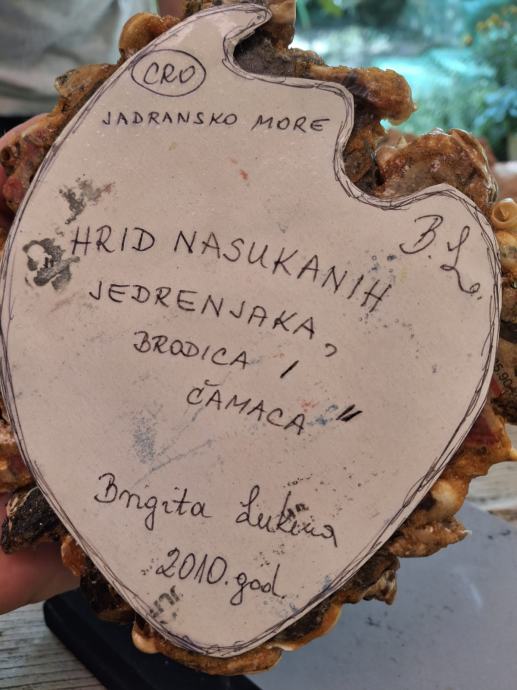 CRO
JADRANSKO MORE
B.L.
HRID NASUKANIH
JEDRENJAKA,
BRODICA,
ČAMACA"
Brigita Lukina
2010.god.